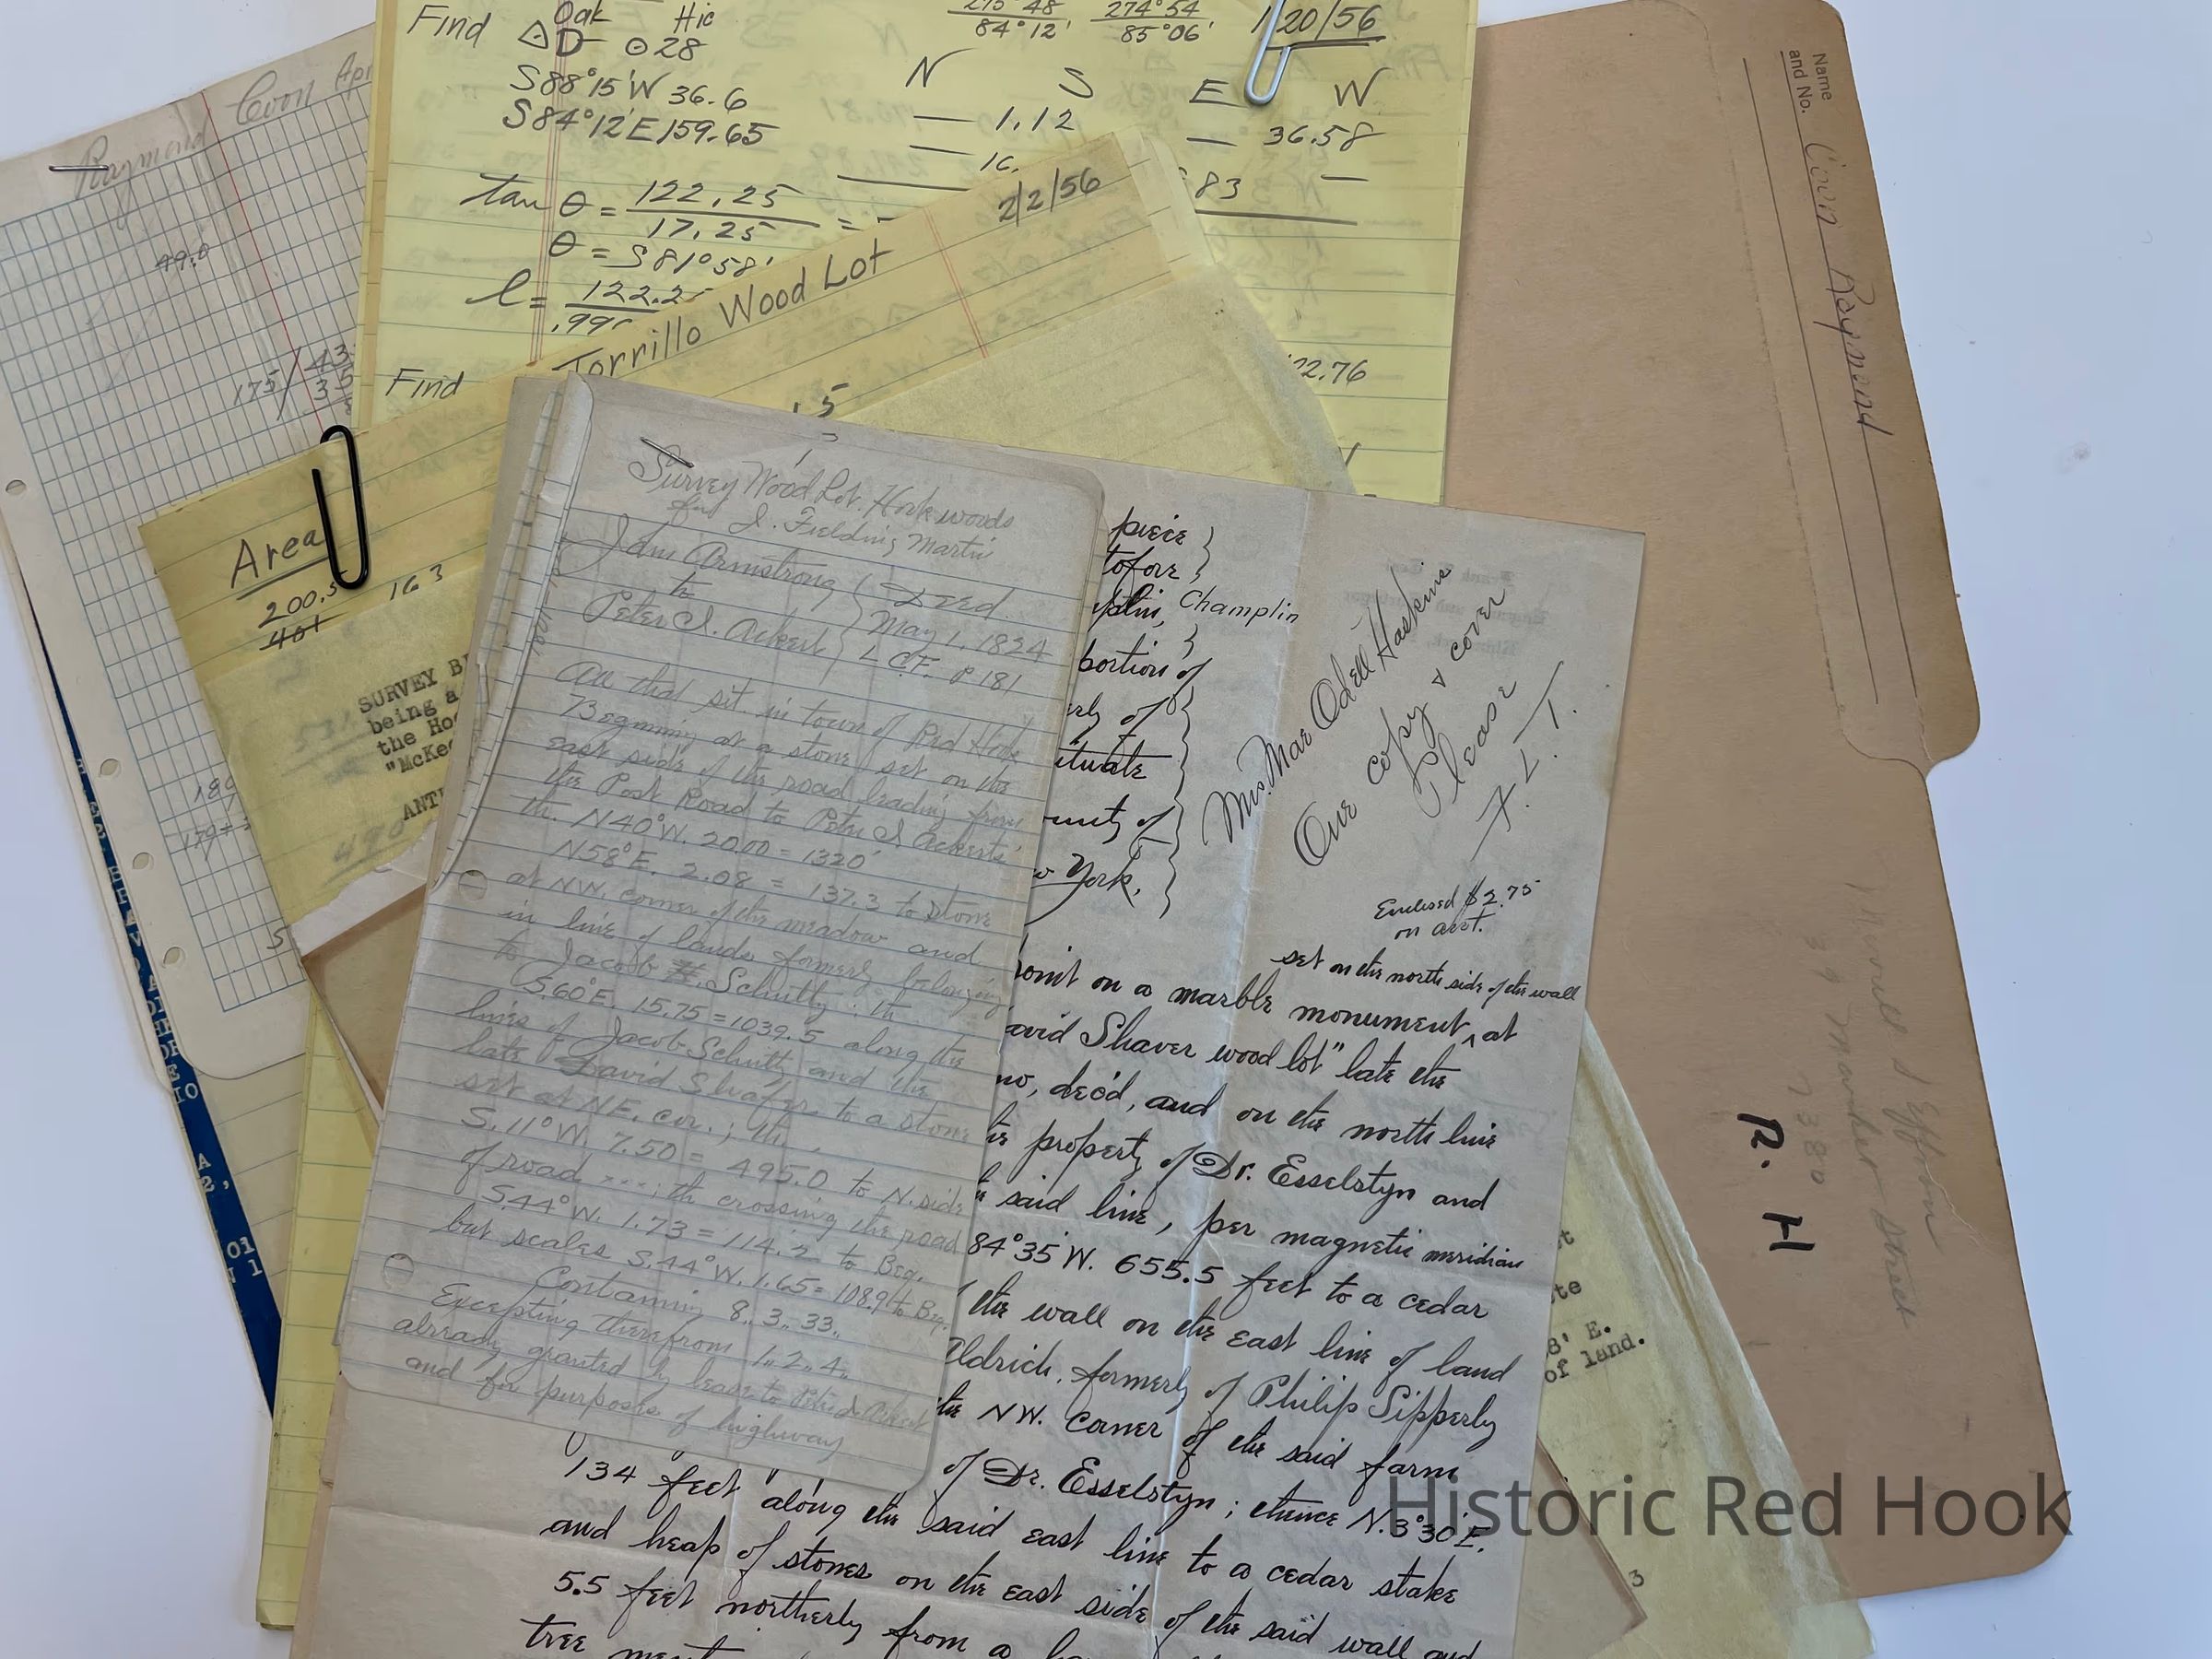 Find Oak Hic
△D ⊙28
S88°15'W 36.6
S84°12'E 159.65
275°48
84°12'
274°54
85°06'
1/20/56
N S E W
— 1.12 — 36.58
— 16. 83 —
tan θ = 122.25 =
17.25
θ = S81°58'
l = 122.2
.99
22.76
Find
Raymond Coon Apr
49.0
175/43
35
Name
and No. Coon Raymond
R. H
2/2/56
Torrillo Wood Lot
1.5
Area
200.5 163
401
SURVEY B
being a
the Ho
"McKe
ANT
490
Survey Wood Lot. Hookwoods
for J. Fielding Martin
John Armstrong
to
Peter I. Ackert
Deed.
May 1, 1824
L C.F. p 181
All that sit. in town of Red Hook
Beginning at a stone set on the
east side of the road leading from
the Post Road to Peter I Ackerts'
th. N40°W. 20.00 = 1320'
N58°E. 2.08 = 137.3 to stone
at NW. corner of the meadow and
in line of lands formerly belonging
to Jacob H. Schultz; th
S60°E. 15.75 = 1039.5 along the
lines of Jacob Schultz and the
late David Shafer to a stone
set at NE. cor.; th.
S. 11°W. 7.50 = 495.0 to N. side
of road ...; th crossing the road
S44°W. 1.73 = 114.2 to Beg.
but scales S.44°W. 1.65 = 108.9 to Beg.
Containing 8,, 3,, 33,,
Excepting therefrom 1,, 2,, 4,,
already granted by lease to Peter I Ackert
and for purposes of highway
piece
tofore
plin, Champlin
portion of
rly of
ituate
ounty of
w York.
Mrs. Mae Odell Haskins
One copy & cover
Please
F. L. T.
Enclosed $2.75
on acct.
set on the north side of the wall
oint on a marble monument ^ at
avid Shaver wood lot" late the
, dec'd, and on the north line
property of Dr. Esselstyn and
said line, per magnetic meridian
84°35'W. 655.5 feet to a cedar
the wall on the east line of land
Aldrich, formerly of Philip Sipperly
the NW. corner of the said farm
of Dr. Esselstyn; thence N.3°30'E.
134 feet along the said east line to a cedar stake
and heap of stones on the east side of the said wall and
5.5 feet northerly from a
tree
8' E.
of land.
3
Historic Red Hook